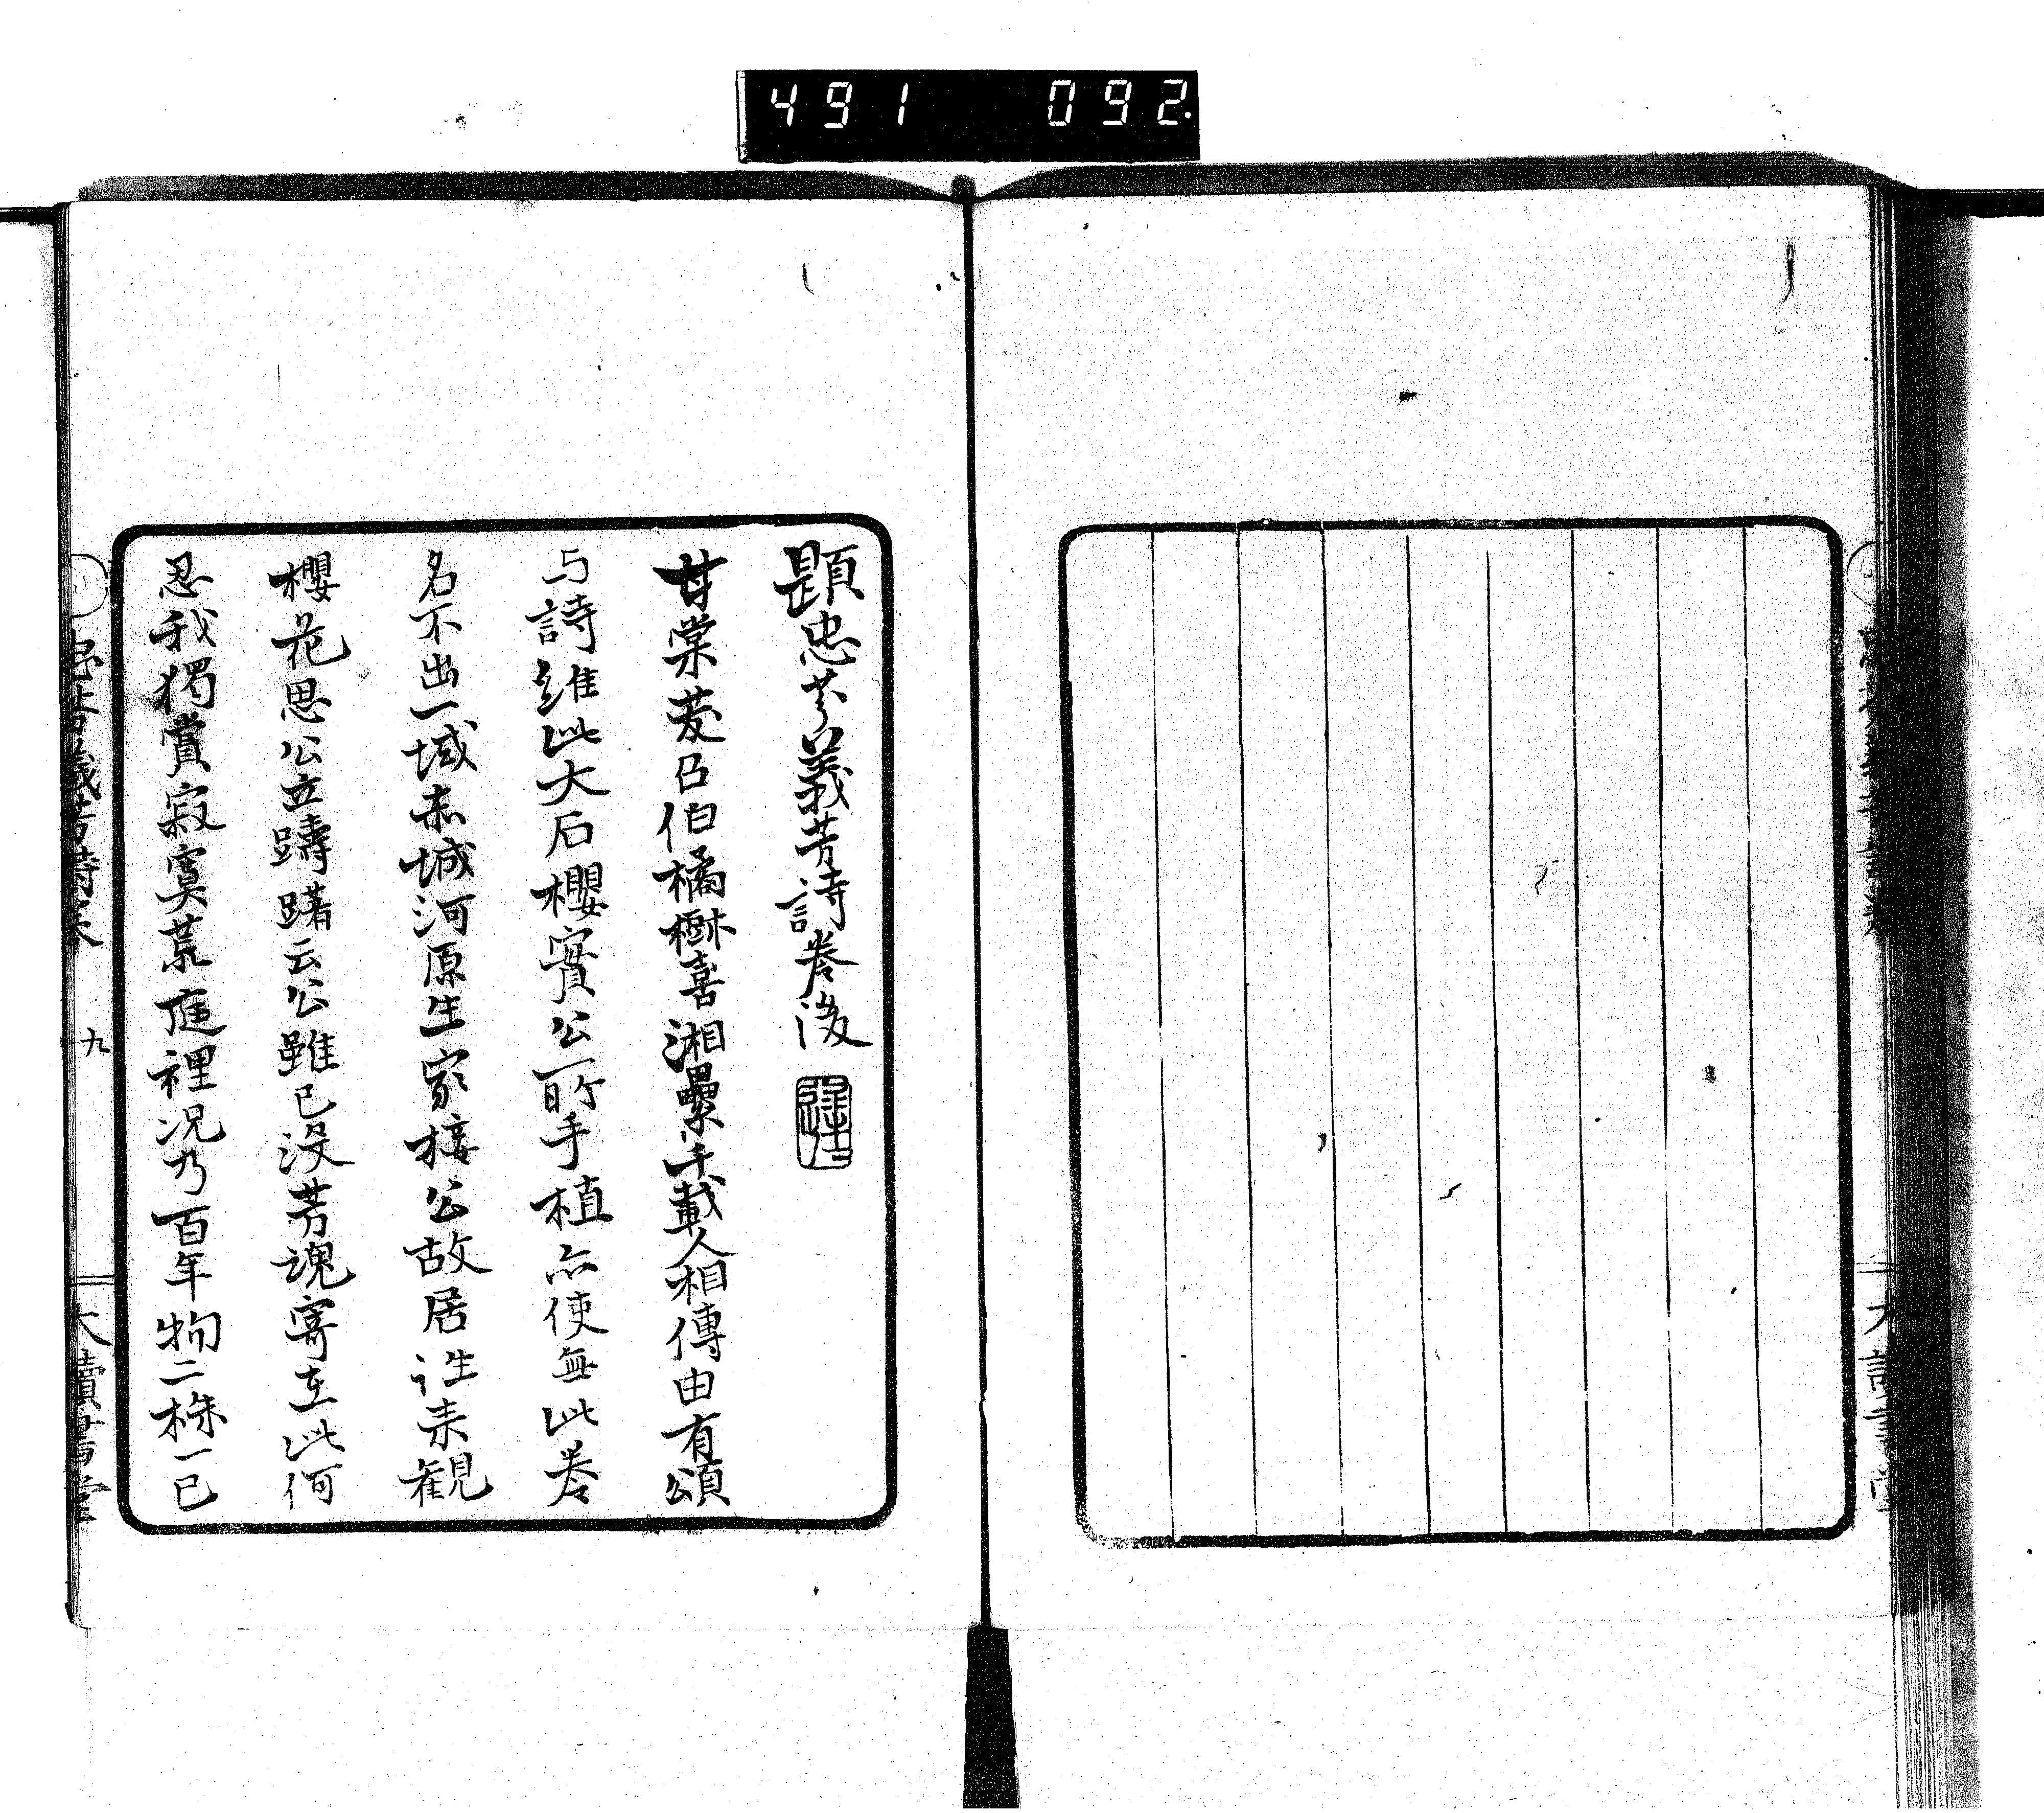 491 092
題忠芬義芳詩巻後
甘棠茇召伯橘樹喜湘纍千載人相傳由有頌
与詩維此大石櫻實公所手植亦使無此巻
名不出一域赤城河原生家接公故居往来観
櫻花思公立躊躇云公雖已没芳魂寄在此何
忍我獨賞寂寞荒庭裡况乃百年物二株一已
九